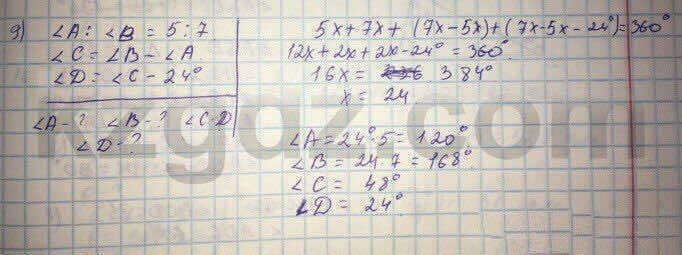 9) ∠A : ∠B = 5 : 7
∠C = ∠B - ∠A
∠D = ∠C - 24°
∠A - ? ∠B - ? ∠C
∠D - ?
5x + 7x + (7x - 5x) + (7x - 5x - 24°) = 360°
12x + 2x + 2x - 24° = 360°.
16x = 384°
x = 24.
∠A = 24°·5 = 120°
∠B = 24·7 = 168°
∠C = 48°
∠D = 24°.
kzgdz.com